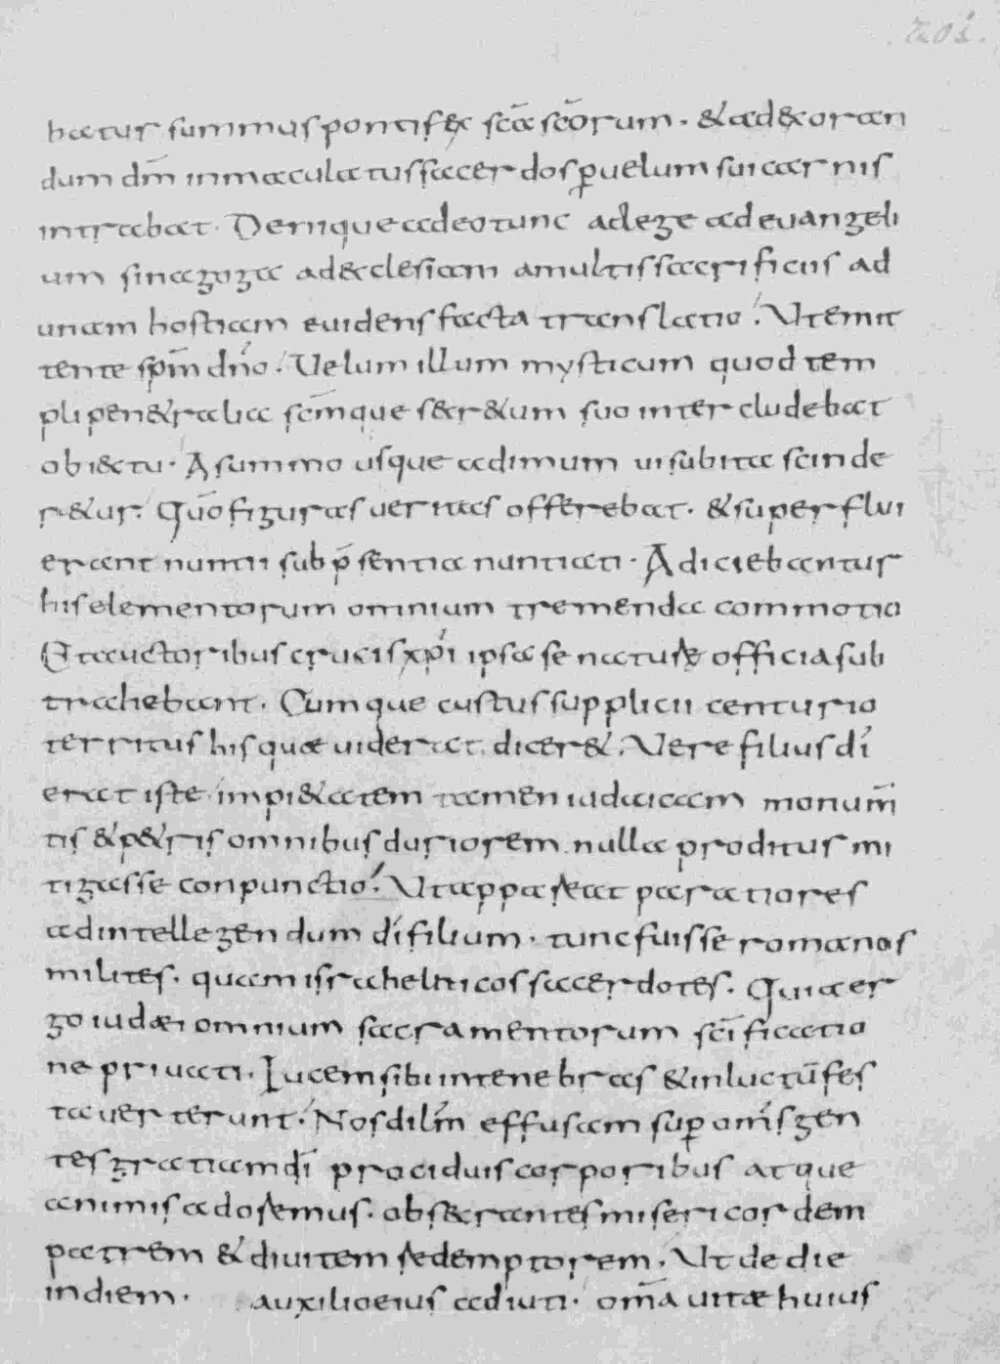 201.
batur summus pontifex sc̄a sc̄orum. & ad exoran
dum dm̄ inmaculatus sacerdos p̱ velum sui carnis
intrabat. Denique adeo tunc a lege ad evangeli
um sinagoga ad ecclesiam a multis sacrificiis ad
unam hostiam evidens facta translatio. Ut emit
tente spm̄ dn̄o. Velum illum mysticum quod tem
pli penetralia scm̄que secretum suo intercludebat
obiectu. A summo usque ad imum vi subita scinde
retur. Qūo figuras veritas offerebat. & superflui
erant nuntii sub p̄sentia nuntiati. Adiciebantur
his elementorum omnium tremenda commotio
Et auctoribus crucis xp̄i ipsa se naturę officia sub
trahebant. Cumque custus supplicii centurio
territus his quæ viderat. dicer&. Vere filius dī
erat iste impi&atem tamen iudaicam monum̄
tis & p&ris omnibus duriorem nulla proditus mi
tigasse conpunctio. Ut appareat paratiores
ad intellegendum dī filium. tunc fuisse romanos
milites. quam israheliticos sacerdotes. Quia er
go iudæi omnium sacramentorum sc̄ificatio
ne privati. Lucem sibi in tenebras & in luctū fes
ta verterunt. Nos dilm̄ effusam sup̱ om̄s gen
tes gratiam dī prociduis corporibus atque
animis adoremus. obsecrantes misericordem
patrem & divitem redemptorem. Ut de die
in diem. auxilio eius adiuti. om̄a vitæ huius